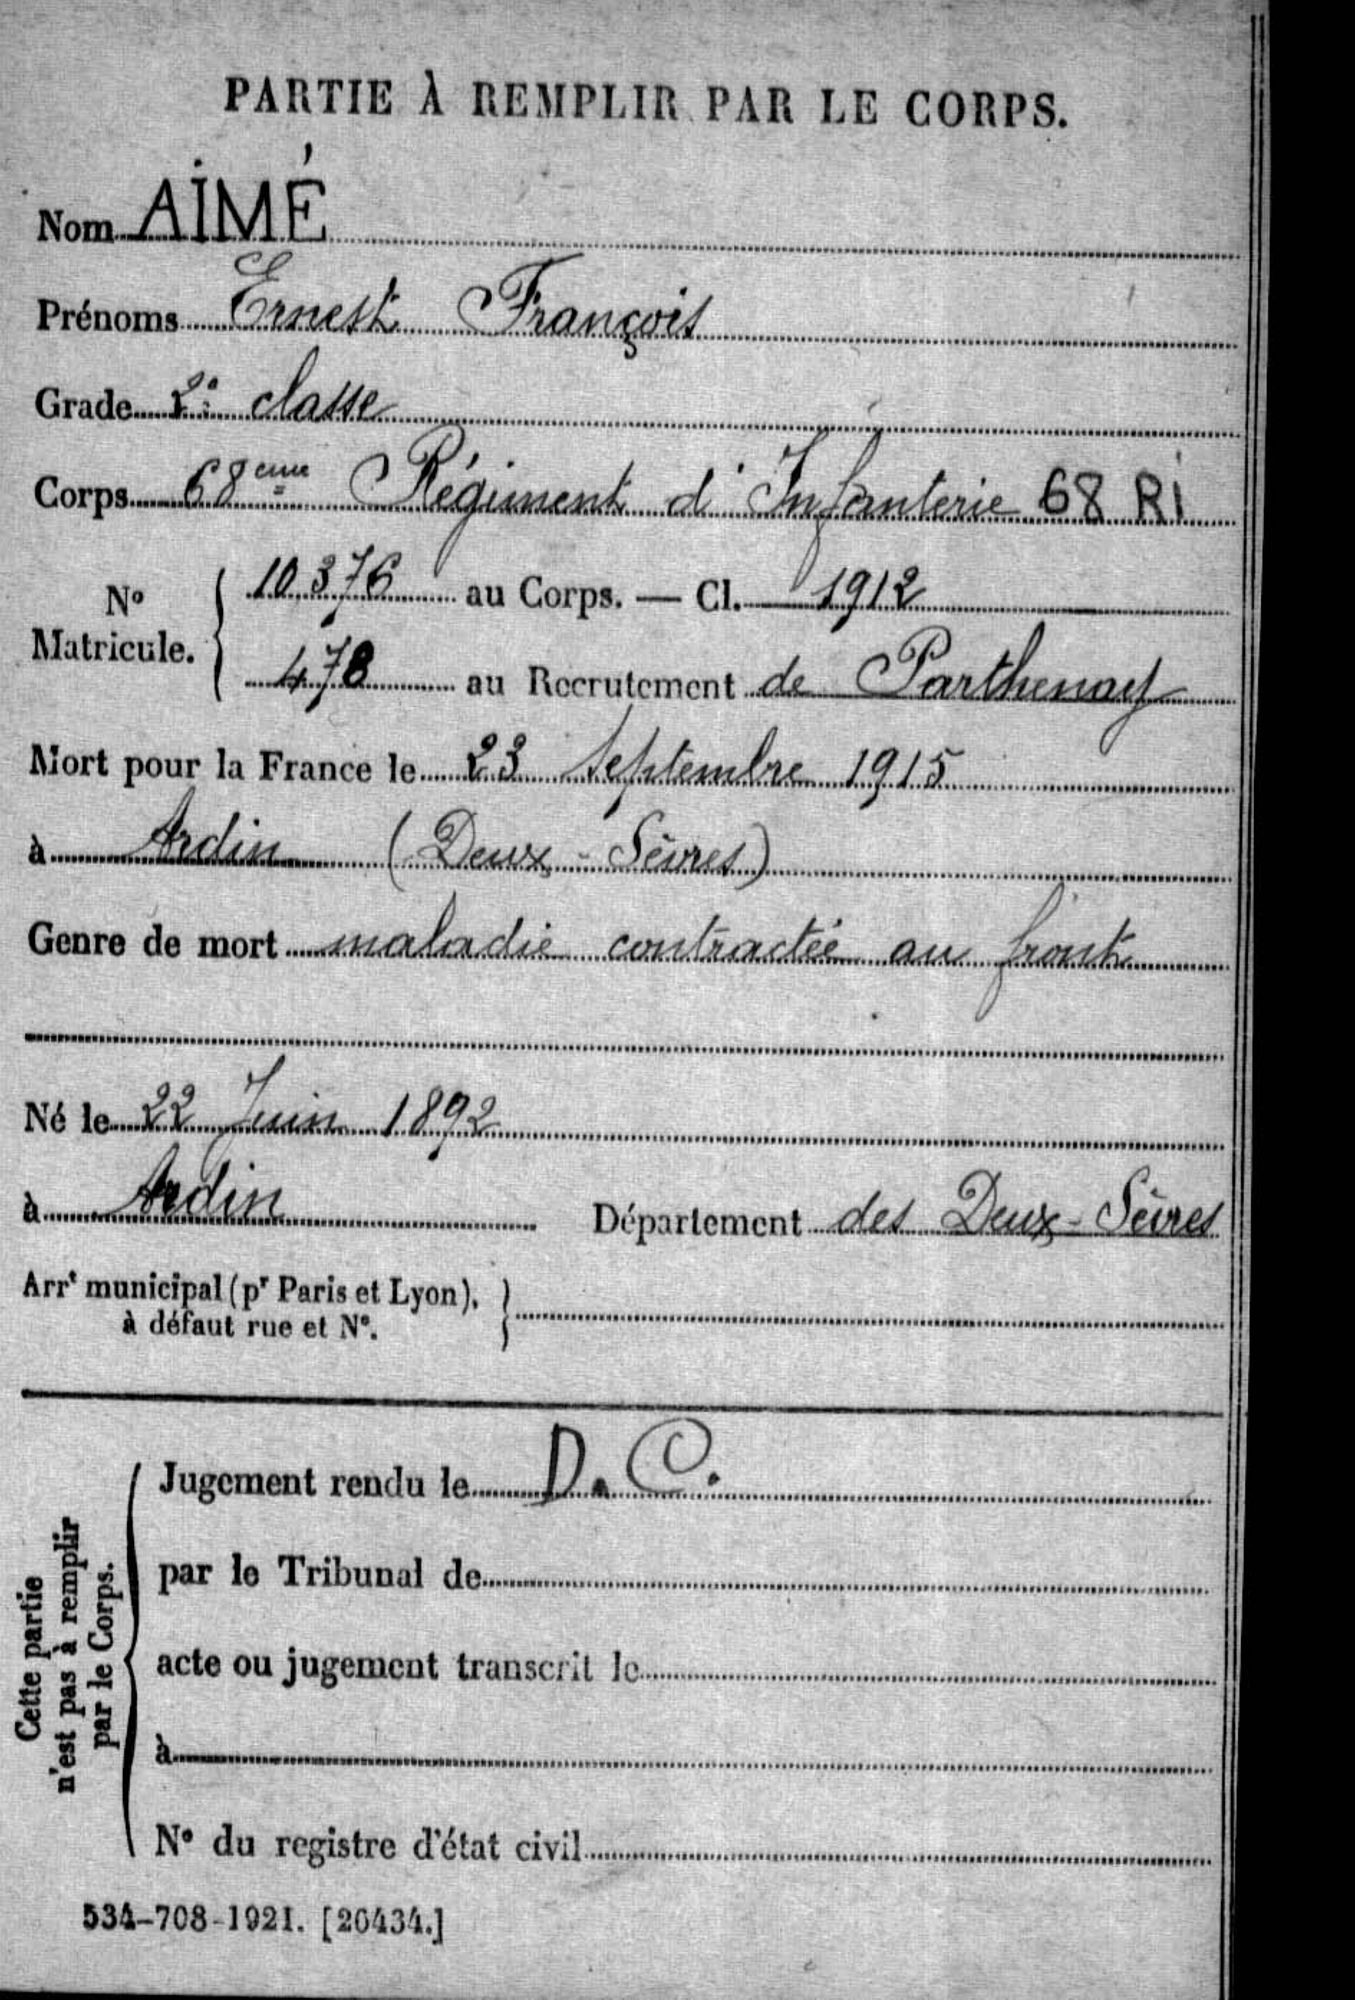 PARTIE À REMPLIR PAR LE CORPS.
Nom AIMÉ
Prénoms Ernest François
Grade 2e classe
Corps 68eme Régiment d'Infanterie 68 RI
No Matricule. { 10.376 au Corps. — Cl. 1912
478 au Recrutement de Parthenay
Mort pour la France le 23 Septembre 1915
à Ardin (Deux-Sèvres)
Genre de mort maladie contractée au front
Né le 22 Juin 1892
à Ardin Département des Deux-Sèvres
Arrt municipal (pr Paris et Lyon), }
à défaut rue et No.
Cette partie
n'est pas à remplir
par le Corps.
Jugement rendu le D. C.
par le Tribunal de
acte ou jugement transcrit le
à
No du registre d'état civil
534-708-1921. [26434.]